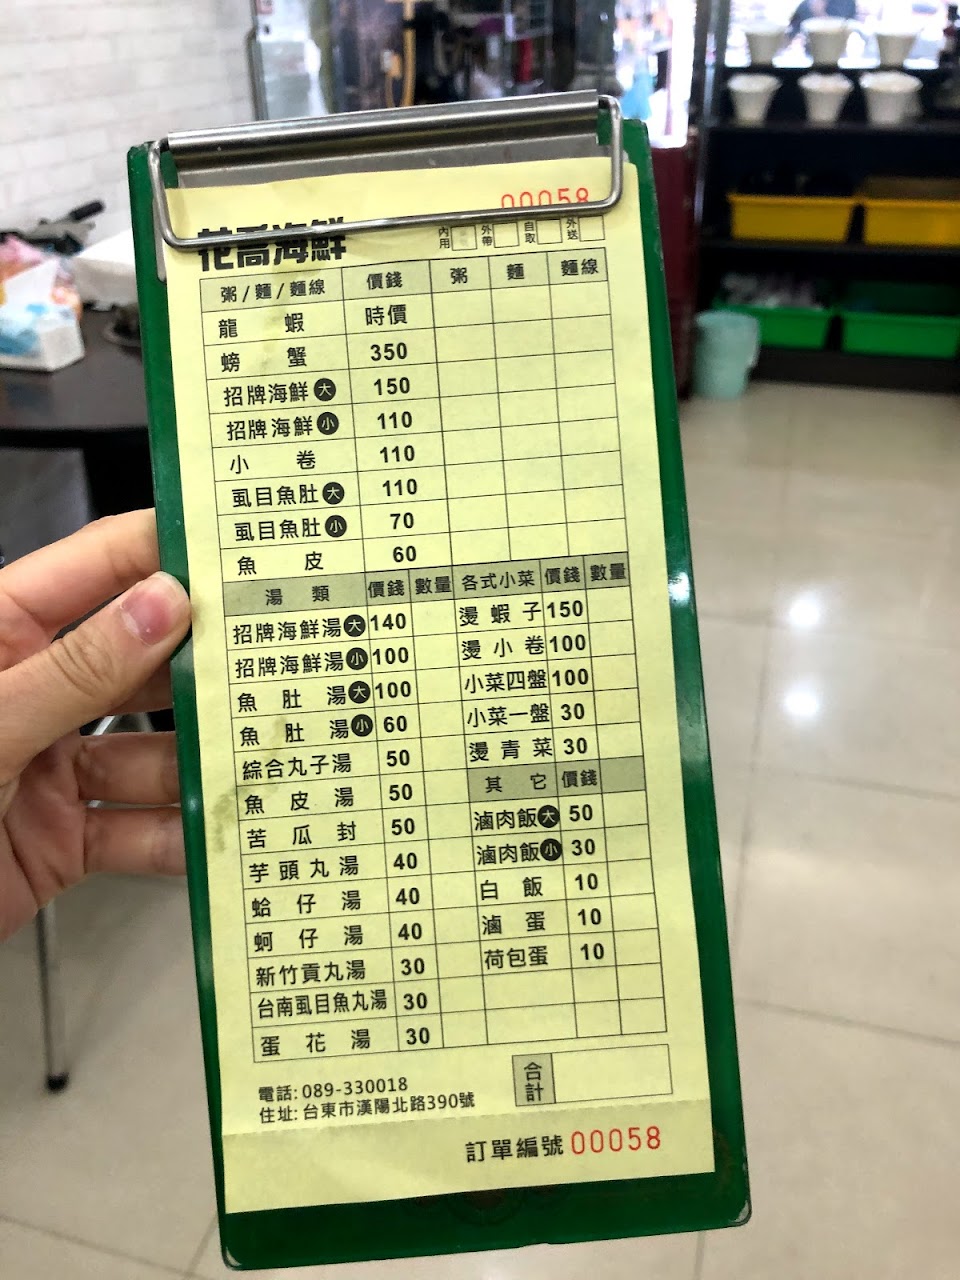 00058
花喬海鮮 內用 外帶 自取 外送
粥/麵/麵線 價錢 粥 麵 麵線
龍蝦 時價
螃蟹 350
招牌海鮮大 150
招牌海鮮小 110
小卷 110
虱目魚肚大 110
虱目魚肚小 70
魚皮 60
湯類 價錢 數量 各式小菜 價錢 數量
招牌海鮮湯大 140 燙蝦子 150
招牌海鮮湯小 100 燙小卷 100
魚肚湯大 100 小菜四盤 100
魚肚湯小 60 小菜一盤 30
綜合丸子湯 50 燙青菜 30
魚皮湯 50 其它 價錢
苦瓜封 50 滷肉飯大 50
芋頭丸湯 40 滷肉飯小 30
蛤仔湯 40 白飯 10
蚵仔湯 40 滷蛋 10
新竹貢丸湯 30 荷包蛋 10
台南虱目魚丸湯 30
蛋花湯 30
電話: 089-330018 合計
住址: 台東市漢陽北路390號
訂單編號 00058